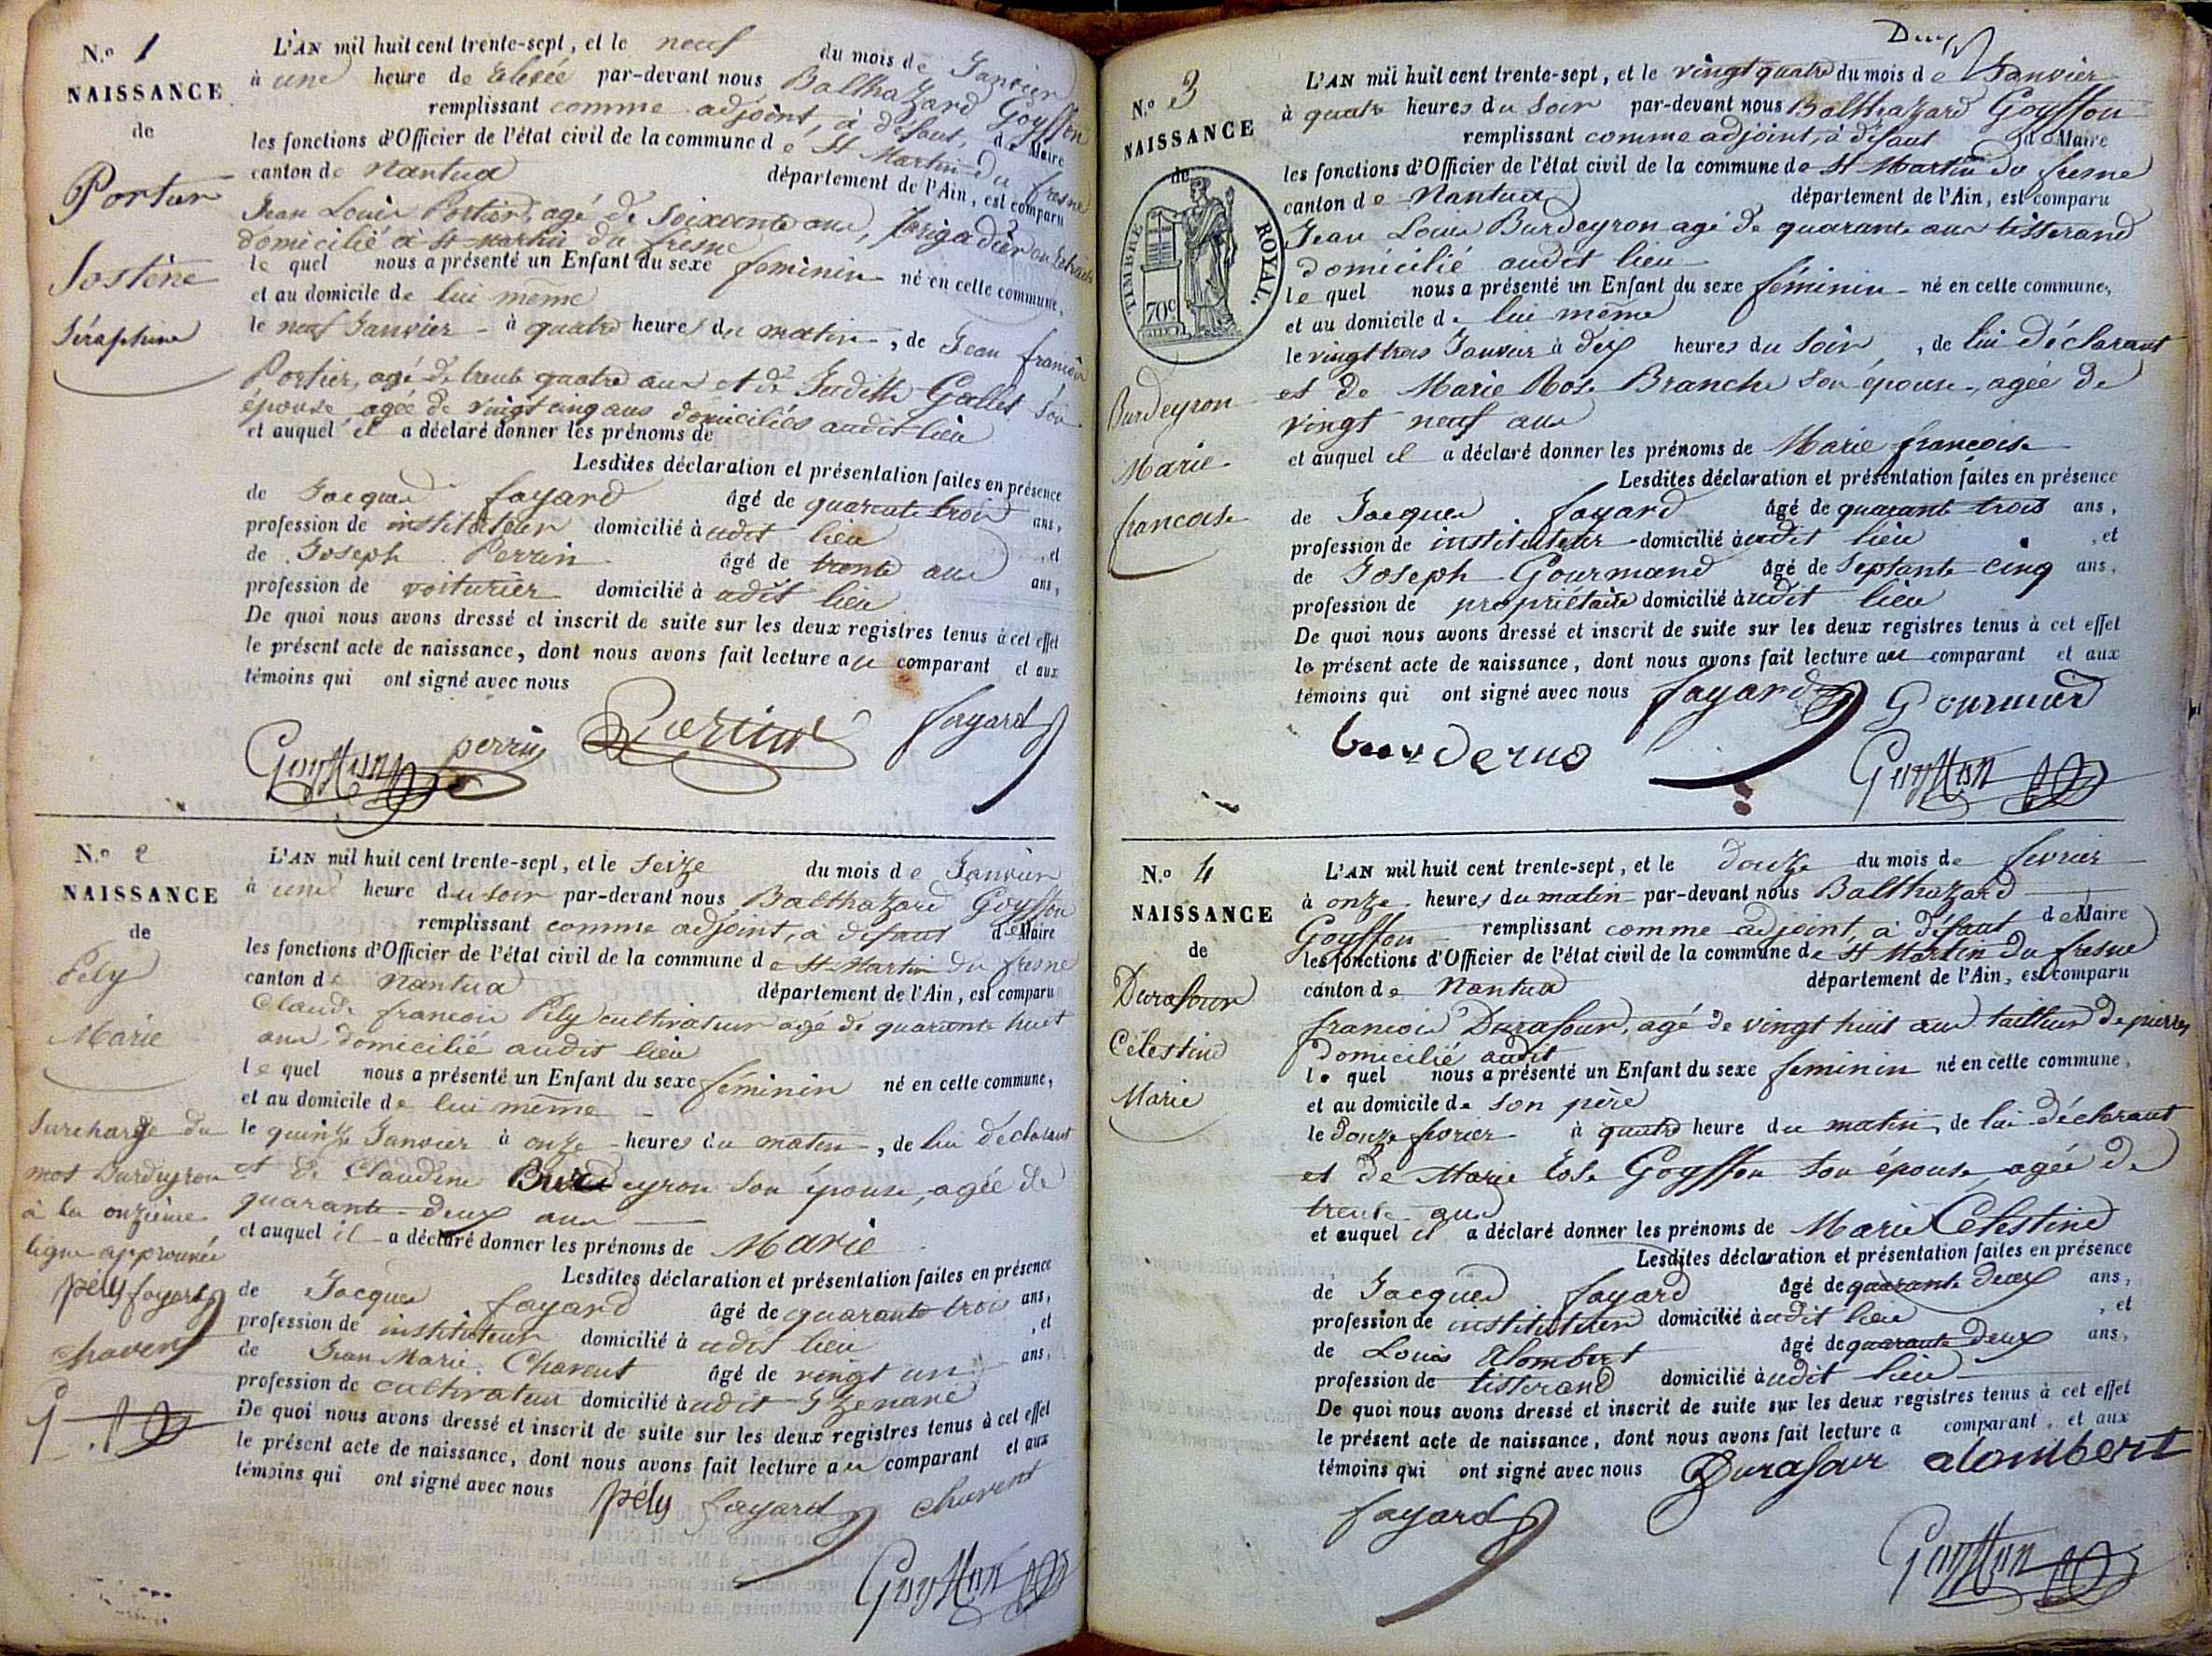 N.o 1
NAISSANCE
de
Portier
Sostène
Séraphine
L'AN mil huit cent trente-sept, et le neuf du mois de Janvier
à une heure de relevée par-devant nous Balthazard Goyffon
remplissant comme adjoint, à défaut, de Maire
les fonctions d'Officier de l'état civil de la commune de St Martin du fresne
canton de Nantua département de l'Ain, est comparu
Jean Louis Portier, agé de Soixante ans, brigadier en retraite
domicilié à St Martin du fresne
le quel nous a présenté un Enfant du sexe feminin né en cette commune,
et au domicile de lui même
le neuf Janvier à quatre heures du matin, de Jean francois
Portier, agé de trente quatre ans et de Judith Gallet son
épouse, agée de vingt cinq ans domiciliés audit lieu
et auquel il a déclaré donner les prénoms de
Lesdites déclaration et présentation faites en présence
de Jacques fayard âgé de quarante trois ans,
profession de instituteur domicilié à udit lieu , et
de Joseph Perrin âgé de trente ans ans,
profession de voiturier domicilié à udit lieu
De quoi nous avons dressé et inscrit de suite sur les deux registres tenus à cet effet
le présent acte de naissance, dont nous avons fait lecture au comparant et aux
témoins qui ont signé avec nous
Goyffon perrin Portier fayard
N.o 2
NAISSANCE
de
Pély
Marie
Surcharge du
mot Burdeyron
à la onzième
ligne approuvée
pély fayard
chavent
L'AN mil huit cent trente-sept, et le Seize du mois de Janvier
à une heure du soir par-devant nous Balthazard Goyffon
remplissant comme adjoint, à défaut de Maire
les fonctions d'Officier de l'état civil de la commune de St Martin du fresne
canton de Nantua département de l'Ain, est comparu
Claude francois Pély cultivateur agé de quarante huit
ans, domicilié audit lieu
le quel nous a présenté un Enfant du sexe féminin né en cette commune,
et au domicile de lui même
le quinze Janvier à onze heures du matin, de lui déclarant
et de Claudine Burdeyron son épouse, agée de
quarante deux ans
et auquel il a déclaré donner les prénoms de Marie
Lesdites déclaration et présentation faites en présence
de Jacques fayard âgé de quarante trois ans,
profession de instituteur domicilié à udit lieu , et
de Jean Marie Chavent âgé de vingt un ans,
profession de cultivateur domicilié à udit Izenave
De quoi nous avons dressé et inscrit de suite sur les deux registres tenus à cet effet
le présent acte de naissance, dont nous avons fait lecture au comparant et aux
témoins qui ont signé avec nous pély fayard chavent
Goyffon
N.o 3
NAISSANCE
de
TIMBRE ROYAL.
70c
Burdeyron
Marie
francoise
Deux
L'AN mil huit cent trente-sept, et le vingt quatre du mois de Janvier
à quatre heures du Soir par-devant nous Balthazard Goyffon
remplissant comme adjoint, à défaut de Maire
les fonctions d'Officier de l'état civil de la commune de St Martin du fresne
canton de Nantua département de l'Ain, est comparu
Jean Louis Burdeyron agé de quarante ans tisserand
domicilié audit lieu
le quel nous a présenté un Enfant du sexe féminin né en cette commune,
et au domicile de lui même
le vingt trois Janvier à dix heures du Soir, de lui Déclarant
et de Marie Rose Branche son épouse, agée de
vingt neuf ans
et auquel il a déclaré donner les prénoms de Marie francoise
Lesdites déclaration et présentation faites en présence
de Jacques fayard âgé de quarante trois ans,
profession de instituteur domicilié à udit lieu , et
de Joseph Gourmand âgé de Septante cinq ans,
profession de propriétaire domicilié à udit lieu
De quoi nous avons dressé et inscrit de suite sur les deux registres tenus à cet effet
le présent acte de naissance, dont nous avons fait lecture au comparant et aux
témoins qui ont signé avec nous fayard
Goyffon
N.o 4
NAISSANCE
de
Durafour
Célestine
Marie
L'AN mil huit cent trente-sept, et le douze du mois de fevrier
à onze heures du matin par-devant nous Balthazard
Goyffon remplissant comme adjoint, à défaut de Maire
les fonctions d'Officier de l'état civil de la commune de St Martin du fresne
canton de Nantua département de l'Ain, est comparu
francois Durafour, agé de vingt huit ans tailleur de pierres
domicilié audit
le quel nous a présenté un Enfant du sexe feminin né en cette commune,
et au domicile de son père
le douze fevrier à quatre heure du matin, de lui déclarant
et de Marie Rose Goyffon son épouse, agée de
trente ans
et auquel il a déclaré donner les prénoms de Marie Célestine
Lesdites déclaration et présentation faites en présence
de Jacques fayard âgé de quarante deux ans,
profession de instituteur domicilié à udit lieu , et
de Louis Alombert âgé de quarante deux ans,
profession de tisserand domicilié à udit lieu
De quoi nous avons dressé et inscrit de suite sur les deux registres tenus à cet effet
le présent acte de naissance, dont nous avons fait lecture a comparant, et aux
témoins qui ont signé avec nous Durafour alombert
fayard
Goyffon